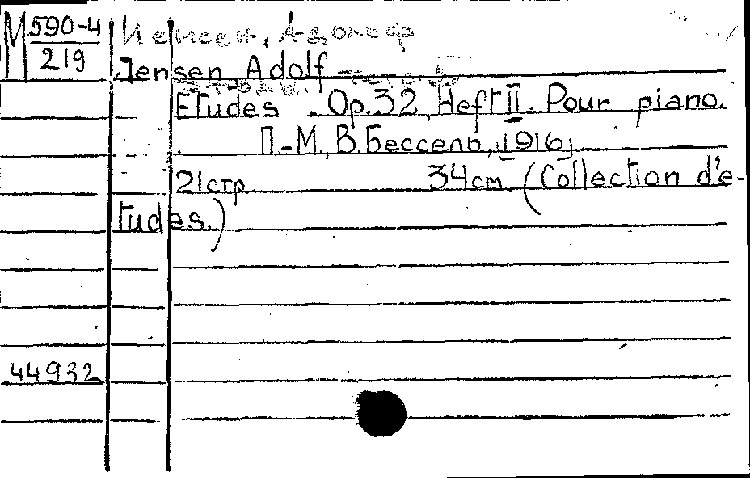 М 590-4
219
Иенсен, Адольф
Jensen, Adolf
Etudes. Op.32, Heft II. Pour piano.
П.-М., В. Бессель, [1916]
21 стр. 34 см. (Collection d'e-
tudes.)
44932